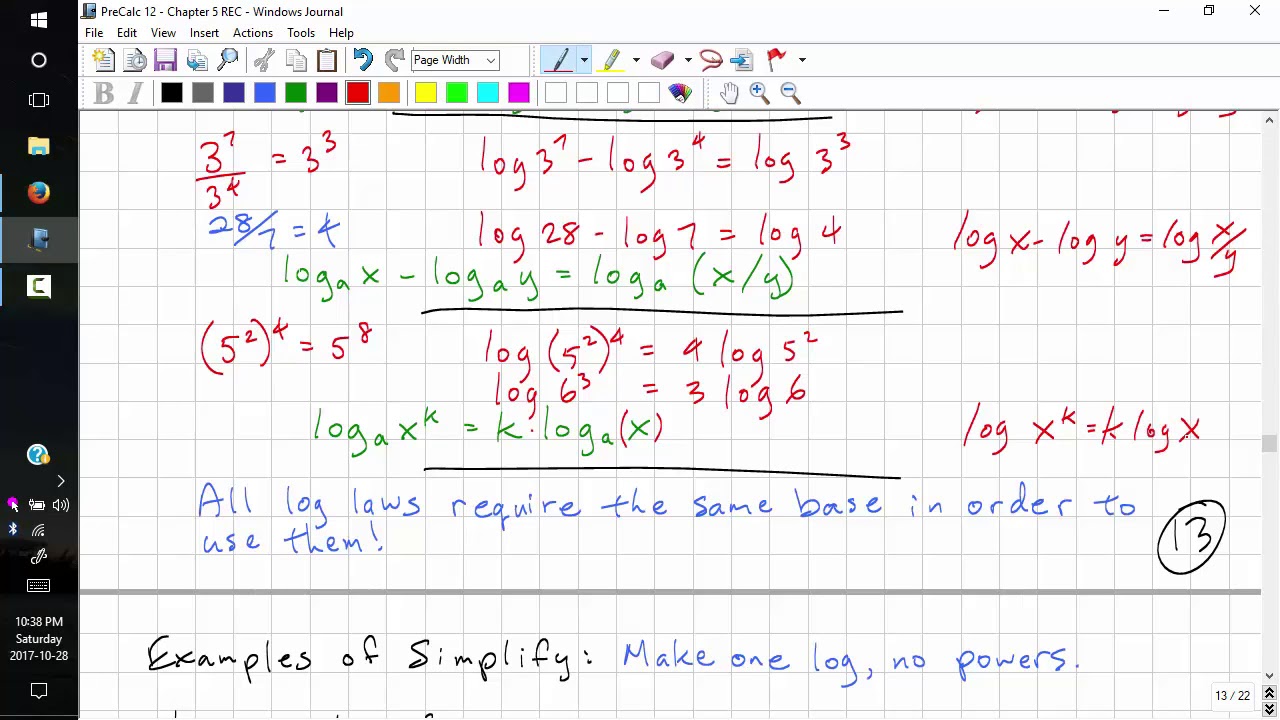 PreCalc 12 - Chapter 5 REC - Windows Journal
File Edit View Insert Actions Tools Help
Page Width
B I
3^7/3^4 = 3^3
log 3^7 - log 3^4 = log 3^3
28/7 = 4
log 28 - log 7 = log 4
log x - log y = log x/y
log_a x - log_a y = log_a (x/y)
(5^2)^4 = 5^8
log (5^2)^4 = 4 log 5^2
log 6^3 = 3 log 6
log_a x^k = k · log_a (x)
log x^k = k log x
All log laws require the same base in order to
use them!
13
Examples of Simplify: Make one log, no powers.
10:38 PM
Saturday
2017-10-28
13 / 22